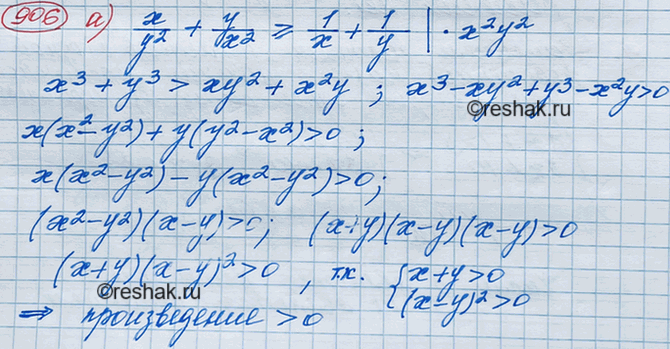 906 a) x/y² + y/x² ≥ 1/x + 1/y | · x²y²
x³ + y³ > xy² + x²y ; x³ - xy² + y³ - x²y > 0
©reshak.ru
x(x² - y²) + y(y² - x²) > 0 ;
x(x² - y²) - y(x² - y²) > 0 ;
(x² - y²)(x - y) > 0 ; (x + y)(x - y)(x - y) > 0
(x + y)(x - y)² > 0 , т.к. { x + y > 0
(x - y)² > 0
©reshak.ru
⇒ произведение > 0